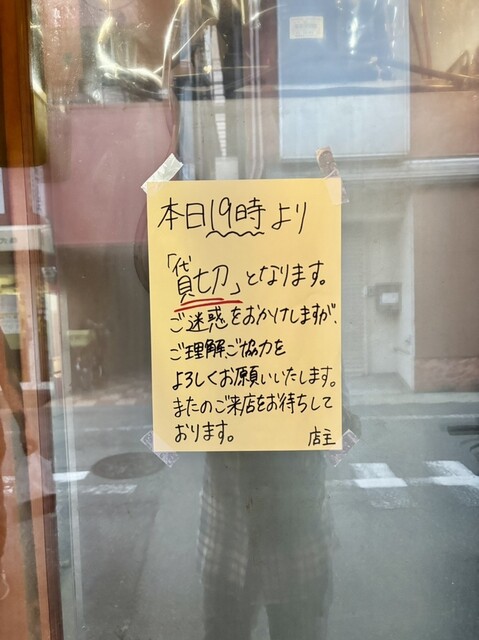 本日19時より
「貸切」となります。
ご迷惑をおかけしますが、
ご理解ご協力を
よろしくお願いいたします。
またのご来店をお待ちして
おります。
店主